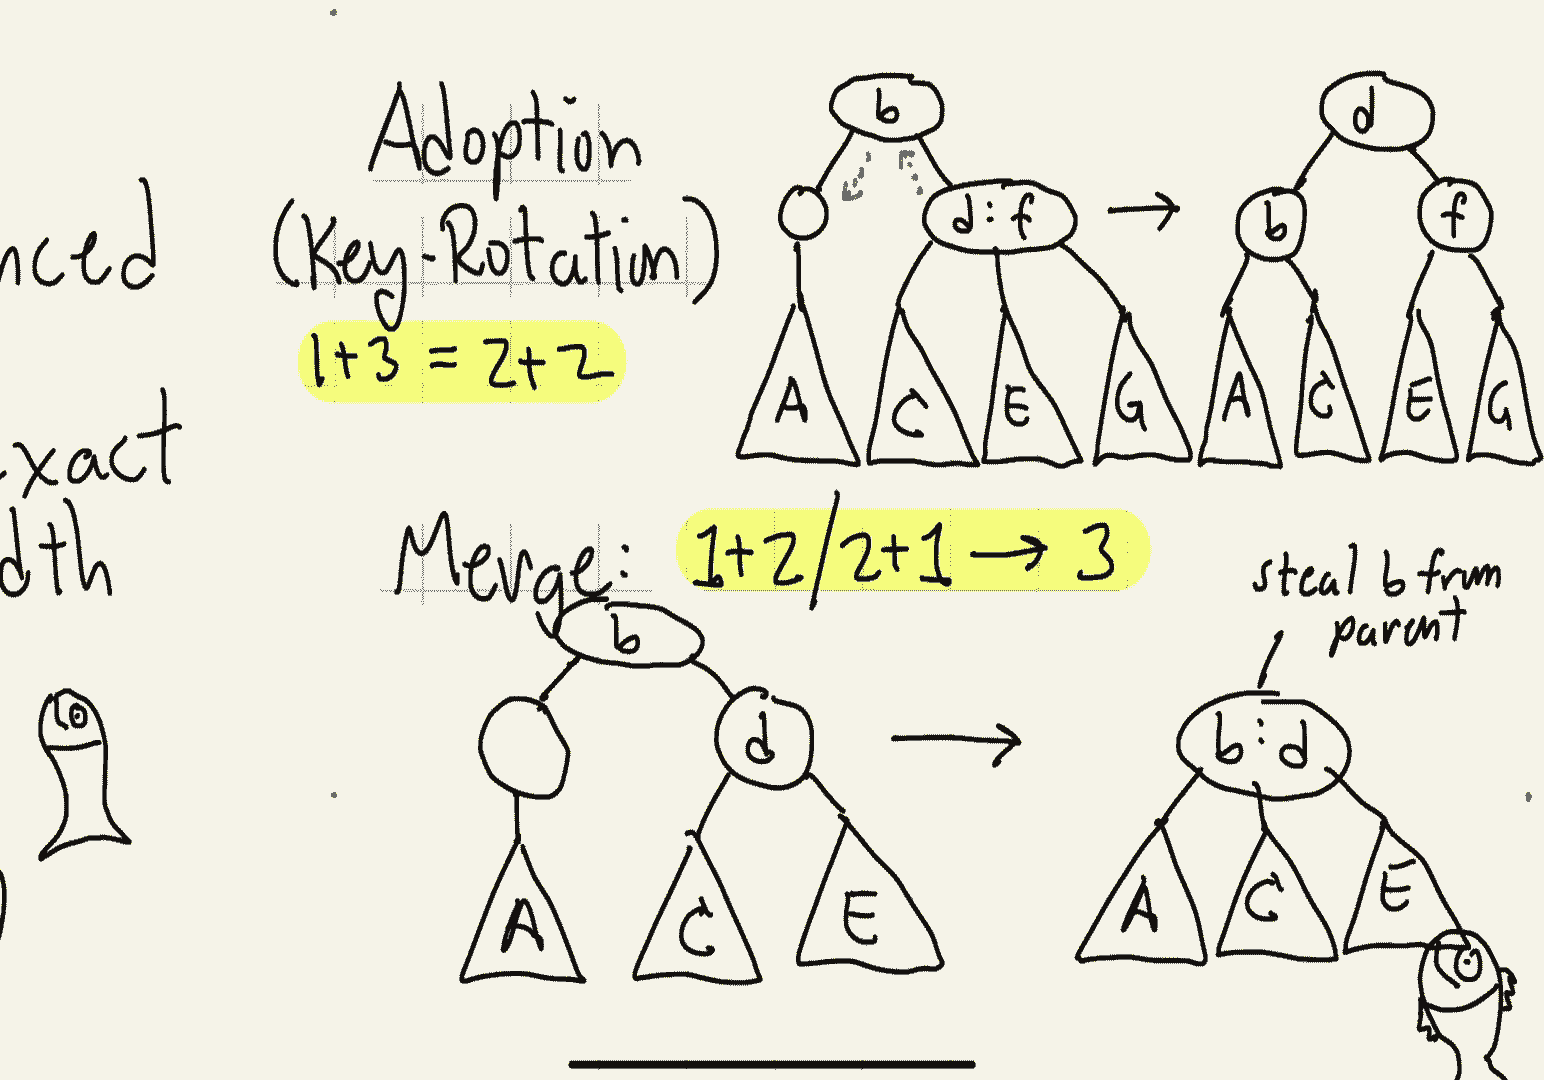 nced
exact
dth
Adoption
(Key-Rotation)
1+3 = 2+2
b
d:f
A C E G
→
d
b f
A C E G
Merge: 1+2/2+1 → 3
b
d
A C E
→
steal b from
parent
b:d
A C E